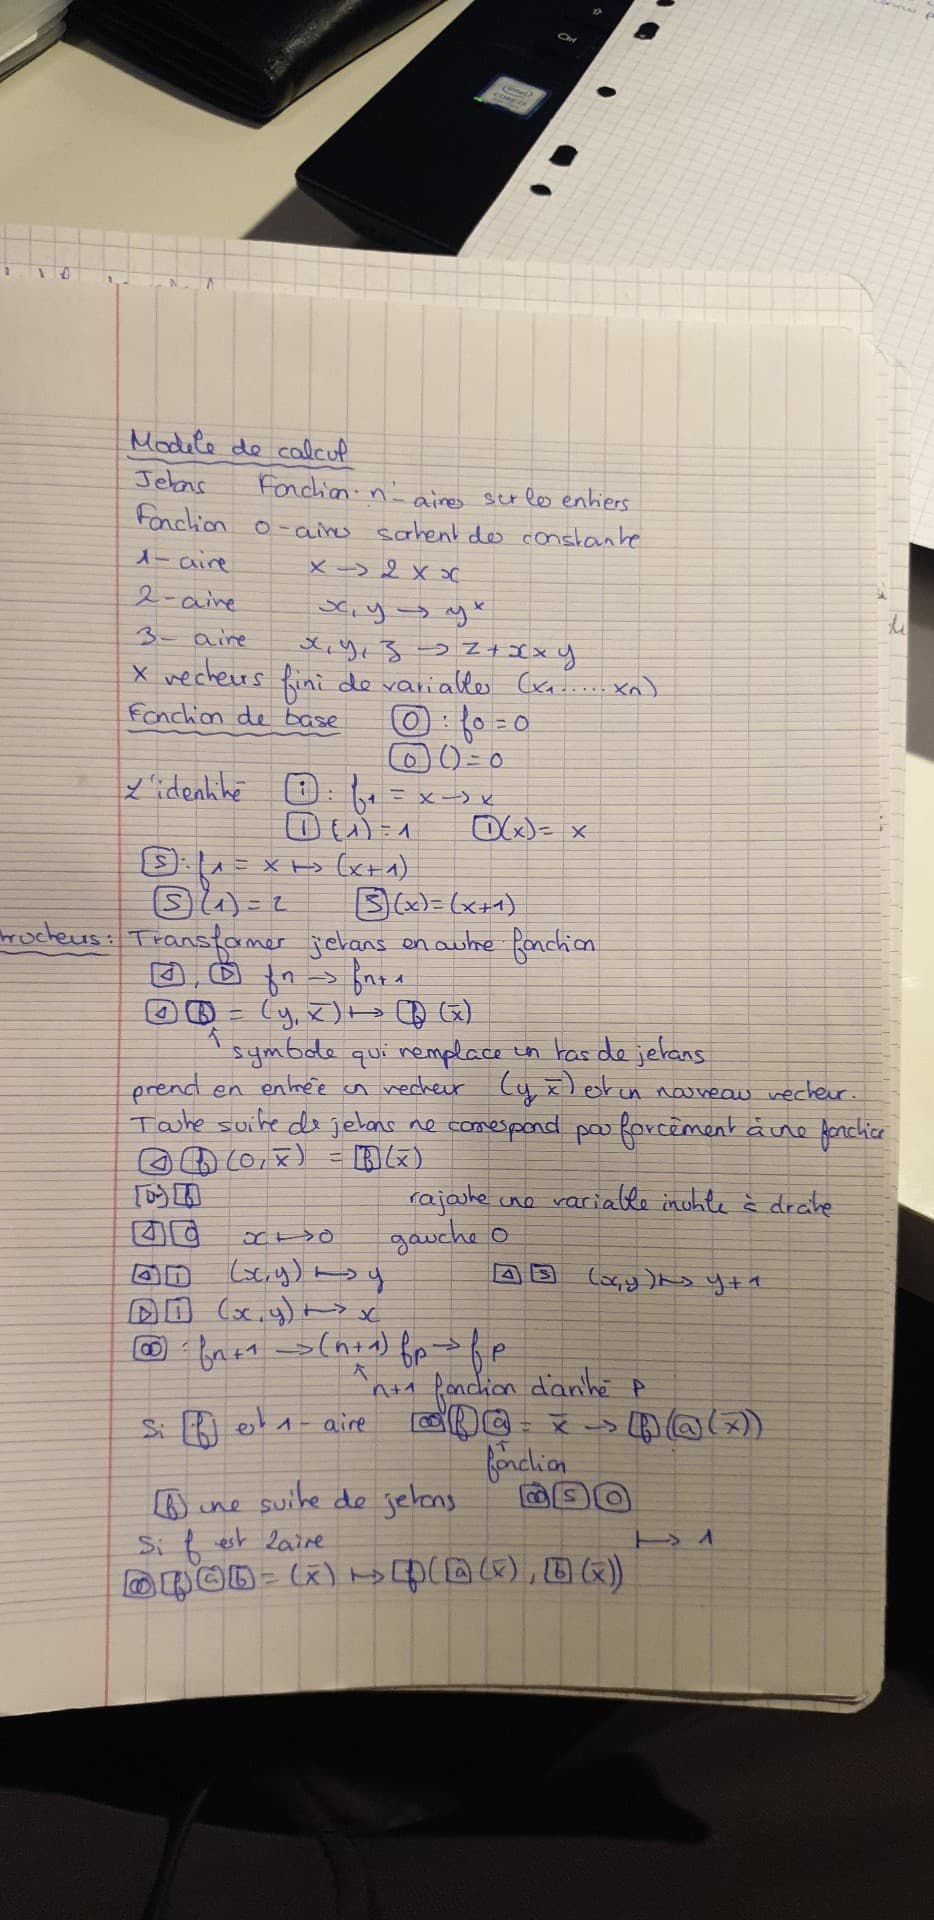 Ctrl
intel
CORE i7
Modele de calcul
Jetons Fonction n-aires sur les entiers
Fonction 0-aires sortent des constante
1-aire x → 2 × x
2-aire x, y → yˣ
3-aire x, y, z → z + x × y
x vecteurs fini de variables (x1 ..... xn)
Fonction de base [0] : f0 = 0
[0] () = 0
L'identité [i] : f1 = x → x
[i] (1) = 1 [i](x) = x
[S] : f1 = x ↦ (x+1)
[S] (1) = 2 [S](x) = (x+1)
: Transformer jetons en autre fonction
[◁], [▷] fn → fn+1
[◁] [f] = (y, x̄) ↦ [f] (x̄)
↑ symbole qui remplace un tas de jetons
prend en entrée un vecteur (y, x̄) est un nouveau vecteur.
Toute suite de jetons ne correspond pas forcément à une fonction
[◁] [f] (0, x̄) = [f](x̄)
[▷] [f] rajoute une variable inutile à droite
[◁] [0] x ↦ 0 gauche 0
[◁] [i] (x, y) ↦ y [◁] [S] (x, y) ↦ y + 1
[▷] [i] (x, y) ↦ x
[∞] : fn+1 → (n+1) fp → fp
↑ n+1 fonction d'arité p
Si [f] est 1-aire [∞] [f] [a] = x̄ → [f] ([a] (x̄))
↑ fonction
[f] une suite de jetons [∞] [S] [0]
Si f est 2aire ↦ 1
[∞] [f] [a] [b] = (x̄) ↦ [f] ([a] (x̄), [b] (x̄))